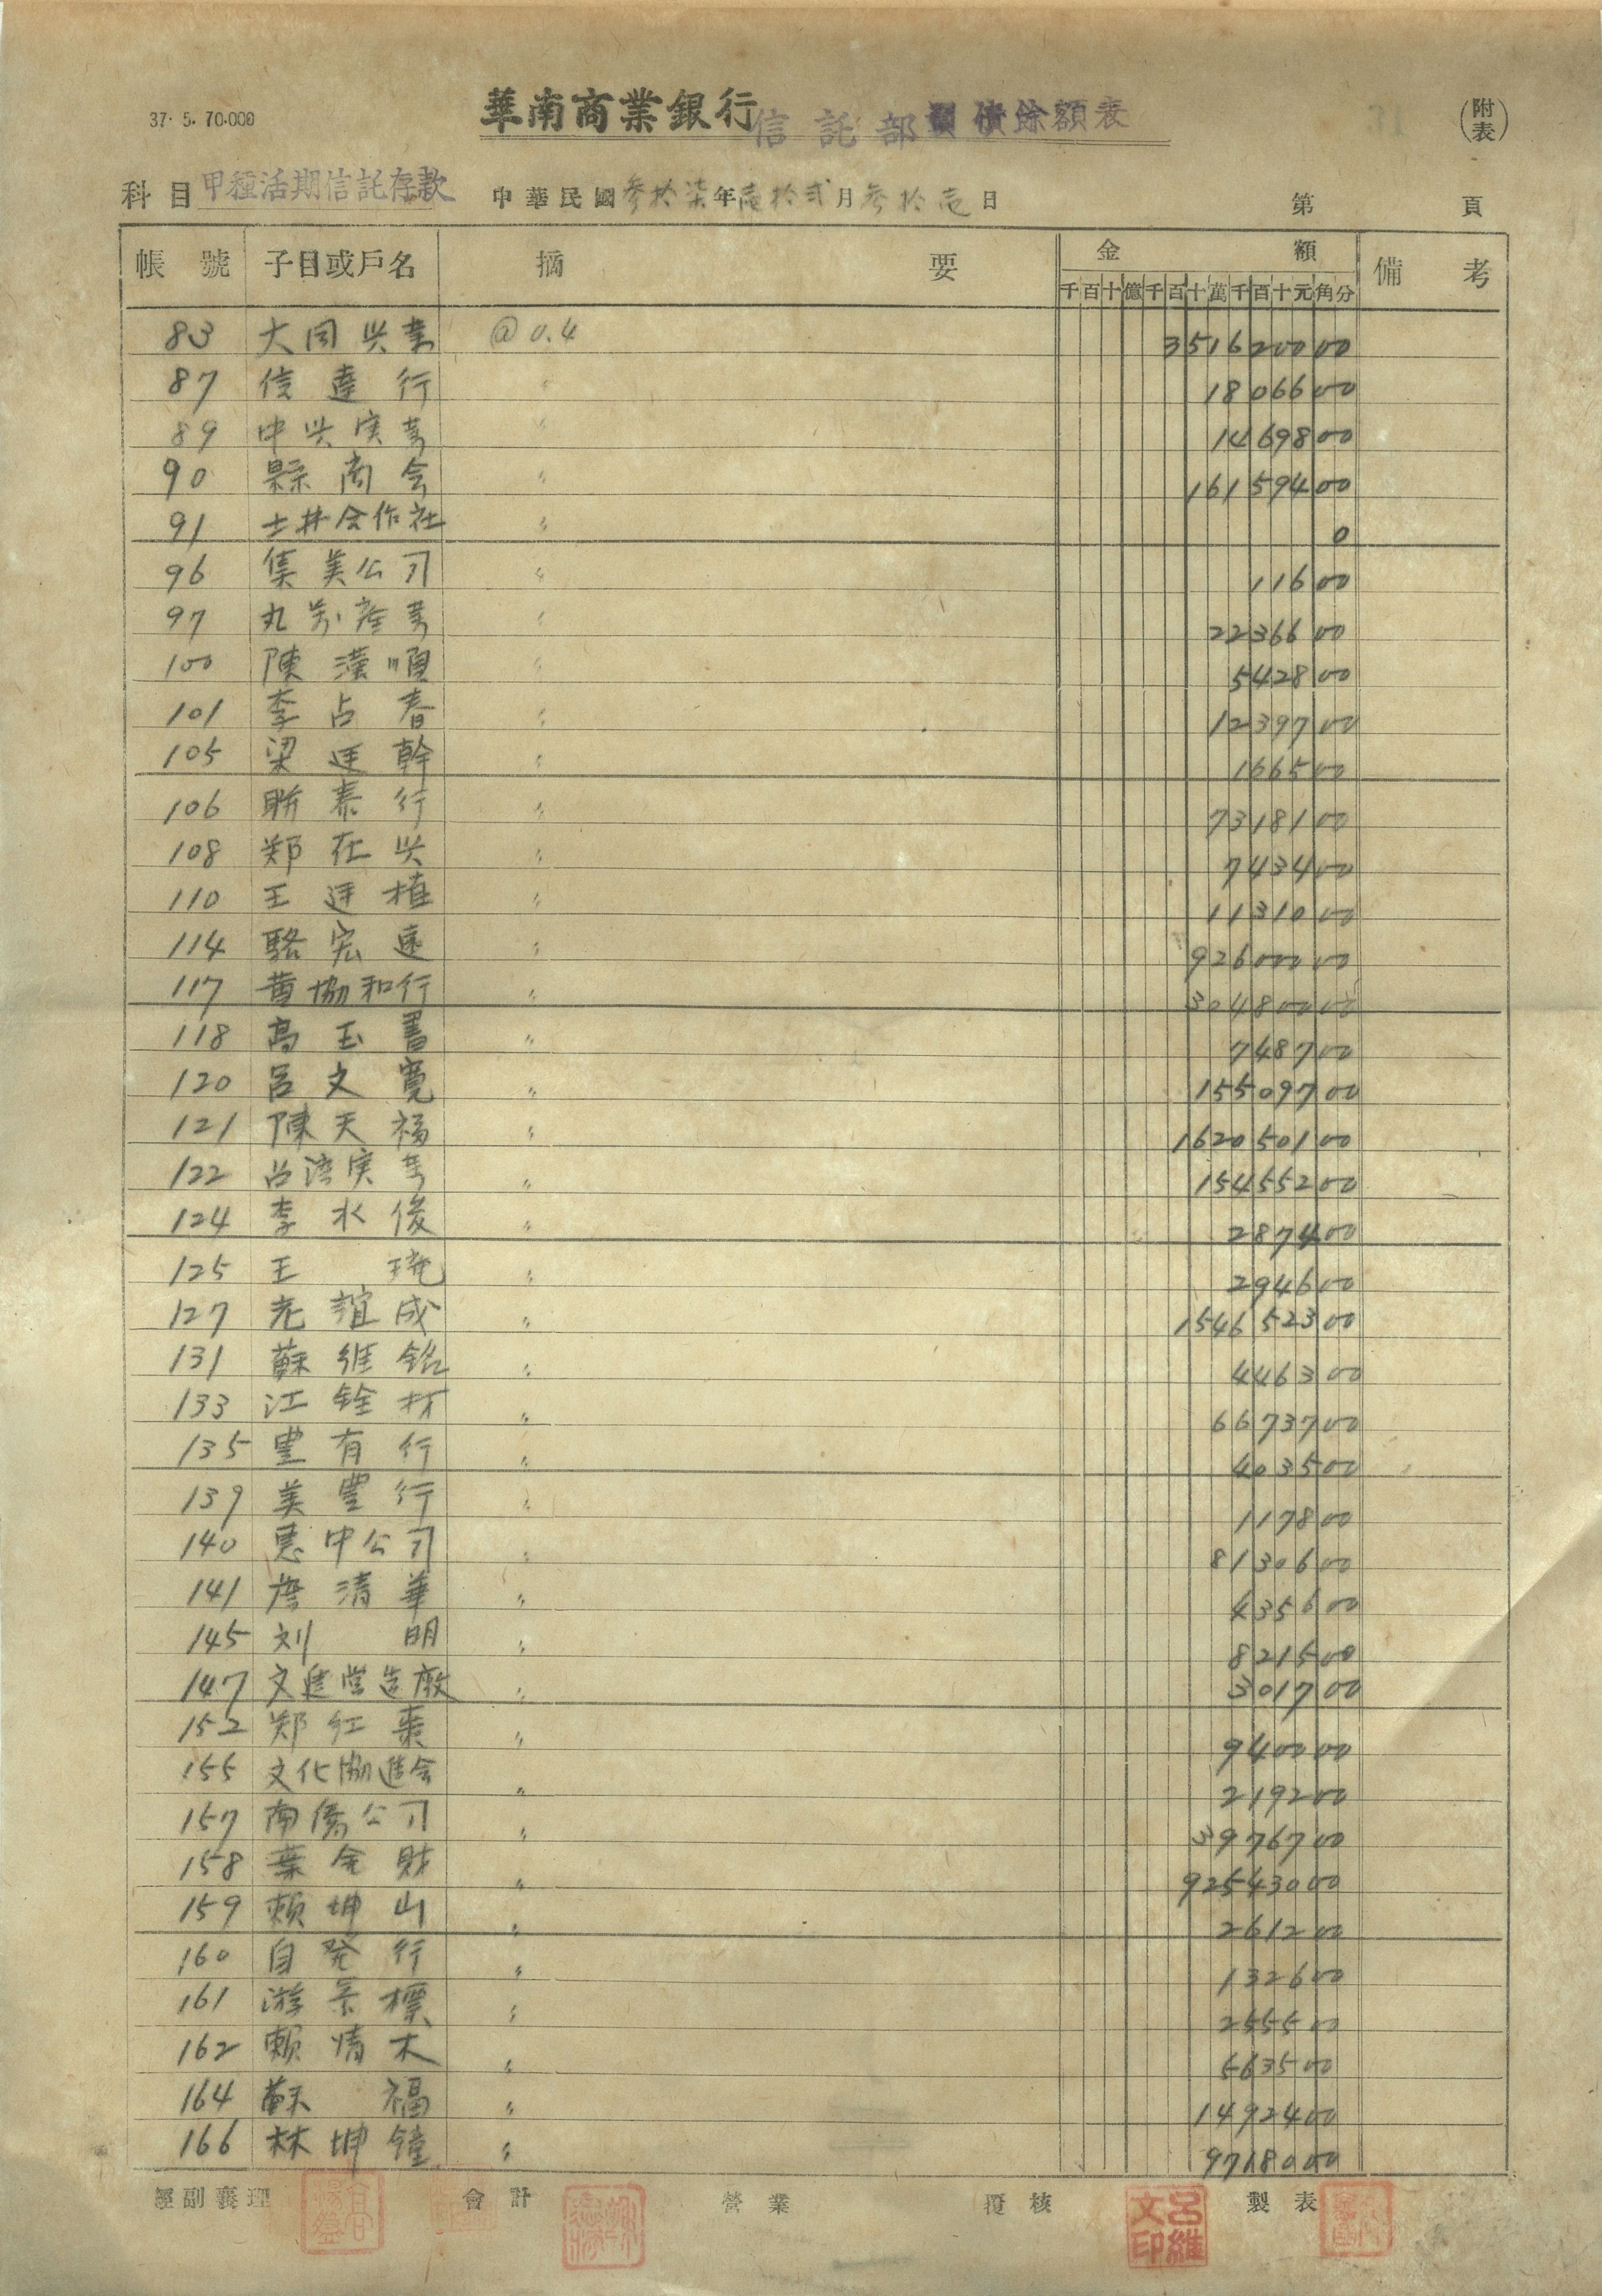 37. 5. 70.000
華南商業銀行信託部 餘額表
(附表)
科目 甲種活期信託存款 中華民國參拾柒年壱拾弍月參拾壱日 第 頁
帳號 子目或戶名 摘要 金額 備考
千百十億千百十萬千百十元角分
83 大同兴業 @0.4 3516200 00
87 信達行 〃 18066 00
89 中兴実業 〃 14698 00
90 縣商会 〃 161594 00
91 土井合作社 〃 0
96 集美公司 〃 116 00
97 丸岁産業 〃 22366 00
100 陳漢順 〃 5428 00
101 李占春 〃 12397 00
105 梁廷幹 〃 1665 00
106 聯泰行 〃 73181 00
108 郑在兴 〃 7434 00
110 王廷植 〃 11310 00
114 駱宏遠 〃 926000 00
117 黄協和行 〃 304800 00
118 高玉書 〃 7487 00
120 呂文寛 〃 155097 00
121 陳天福 〃 1620501 00
122 台湾実業 〃 154552 00
124 李水俊 〃 2874 00
125 王琬 〃 2946 00
127 老誼成 〃 1546523 00
131 蘇維銘 〃 4463 00
133 江銓材 〃 66737 00
135 豊有行 〃 4035 00
139 美豊行 〃 1178 00
140 惠中公司 〃 81306 00
141 詹清華 〃 4356 00
145 刘明 〃 8215 00
147 文建営造廠 〃 3017 00
152 郑红棗 〃 9400 00
155 文化協進会 〃 2192 00
157 南僑公司 〃 39767 00
158 葉金財 〃 925430 00
159 賴坤山 〃 2612 00
160 自発行 〃 1326 00
161 游景標 〃 2555 00
162 賴清木 〃 5635 00
164 蘇福 〃 14924 00
166 林坤鐘 〃 97180 00
經副襄理 會計 營業 覆核 呂維文印 製表